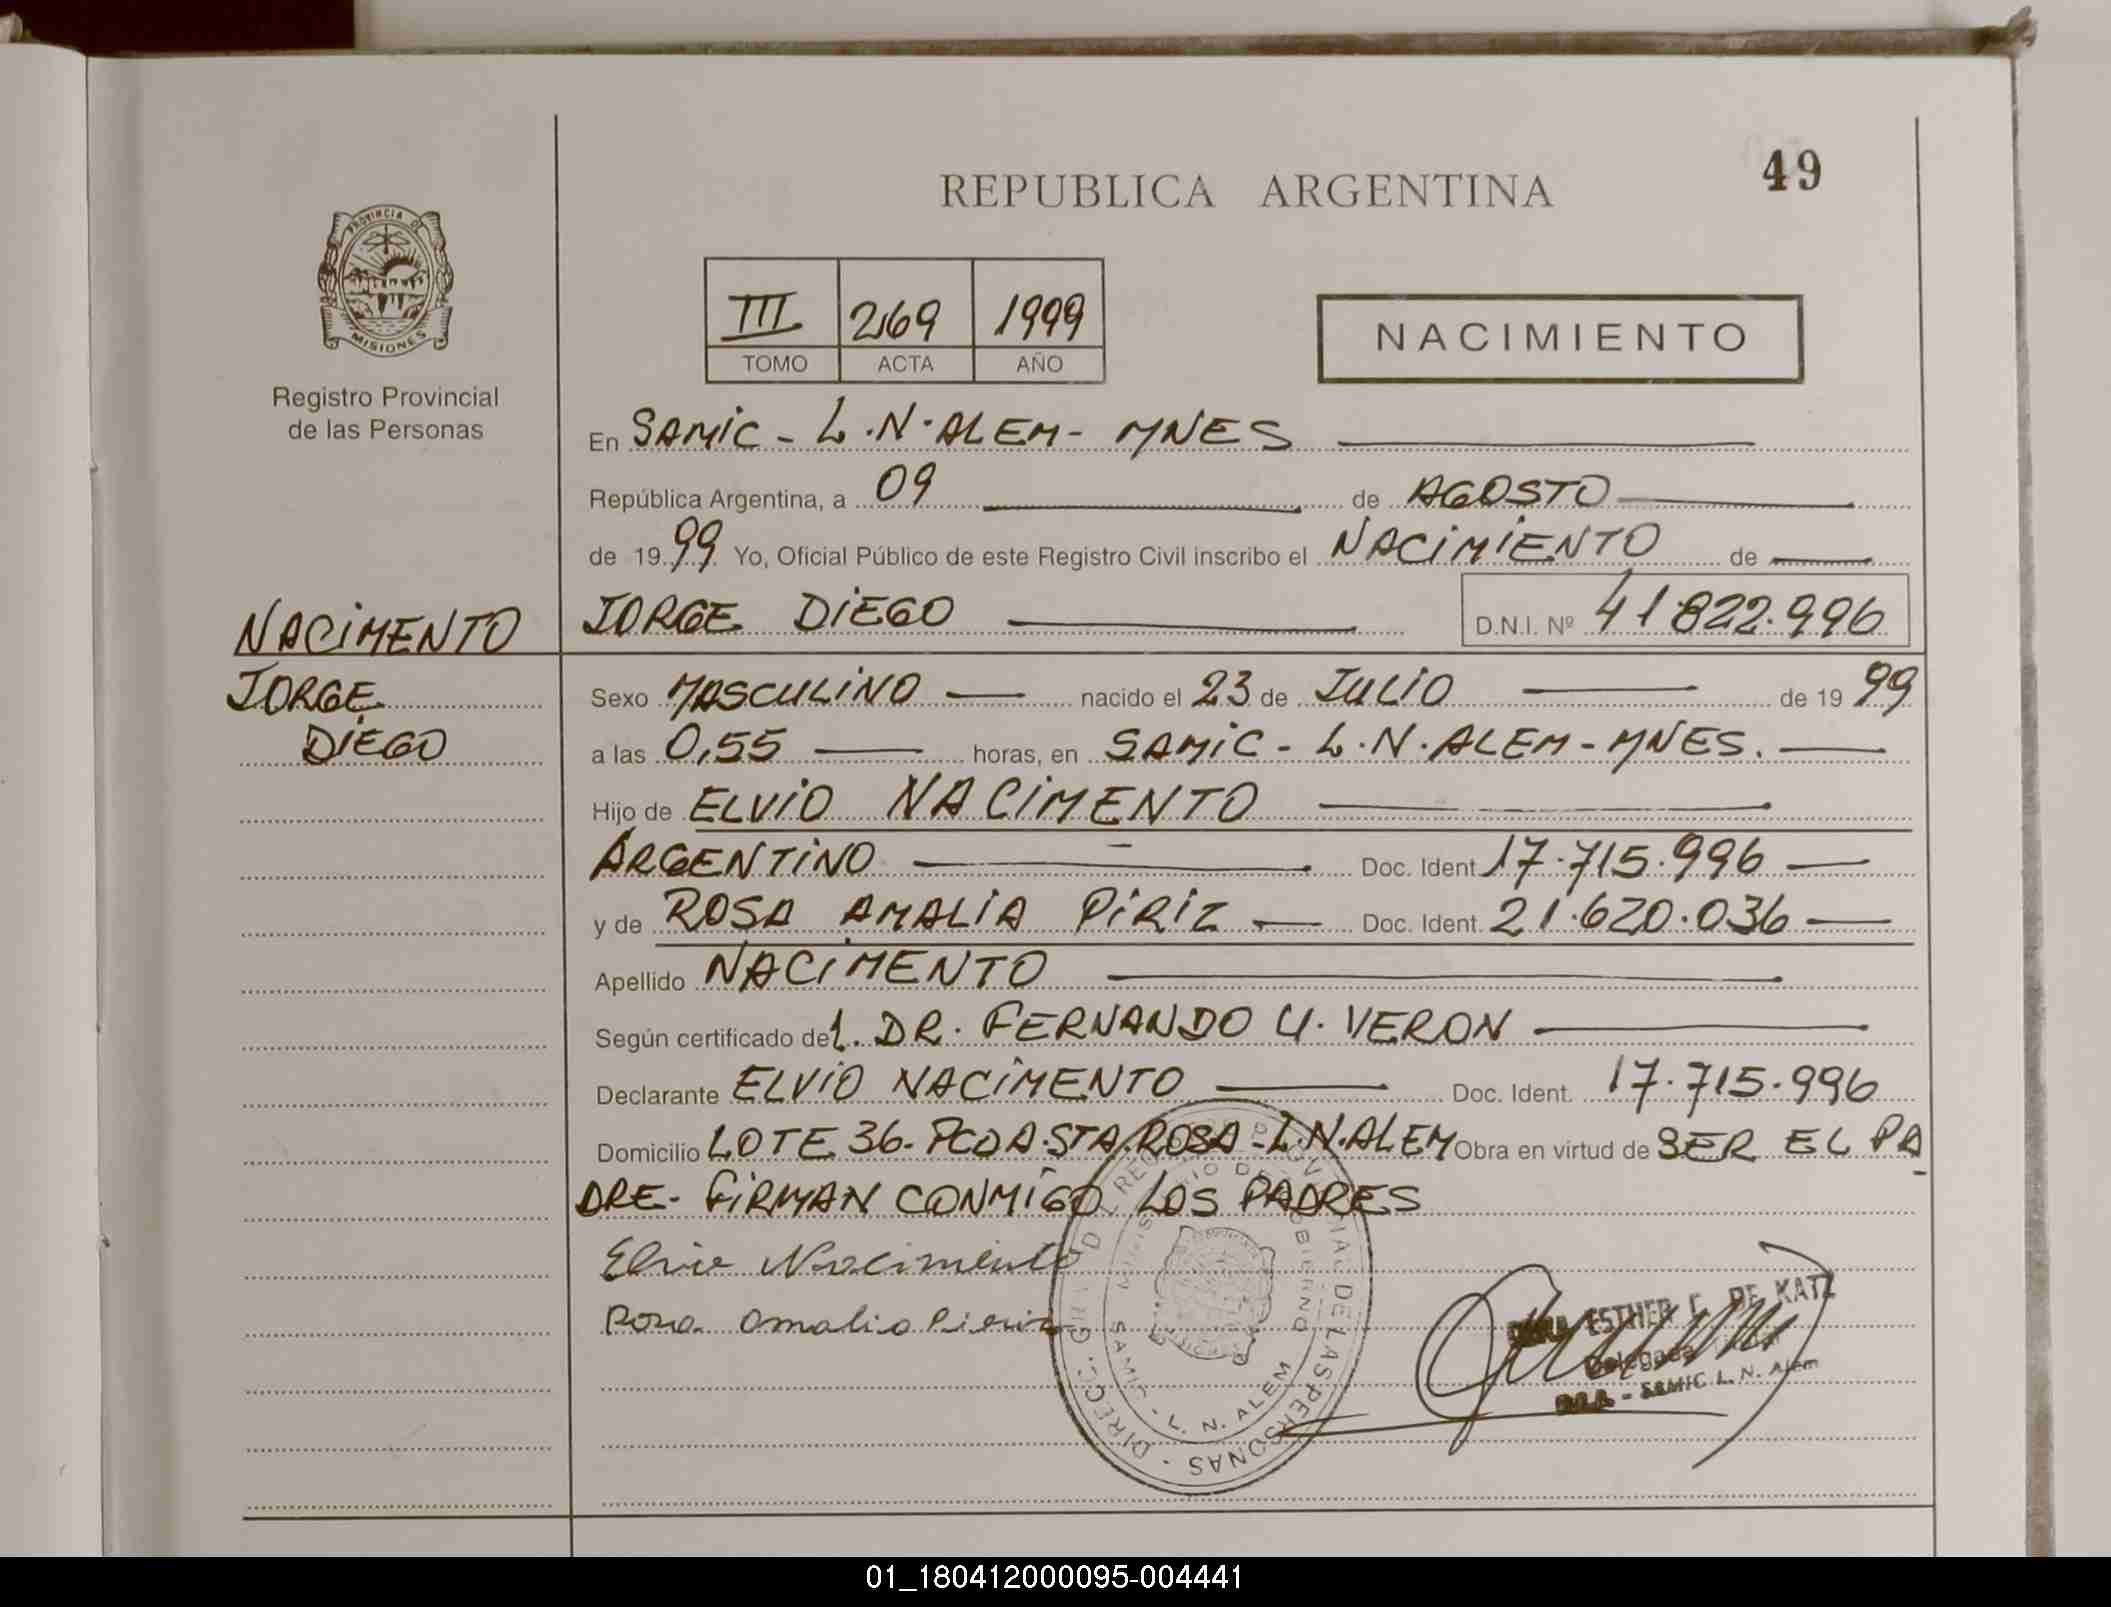 49
REPUBLICA ARGENTINA
PROVINCIA DE
MISIONES
Registro Provincial
de las Personas
III 269 1999
TOMO ACTA AÑO
NACIMIENTO
En SAMIC - L.N.ALEM - MNES
República Argentina, a 09 de AGOSTO
de 1999 Yo, Oficial Público de este Registro Civil inscribo el NACIMIENTO de
NACIMENTO JORGE DIEGO D.N.I. Nº 41.822.996
JORGE Sexo MASCULINO nacido el 23 de JULIO de 1999
DIEGO a las 0,55 horas, en SAMIC - L.N.ALEM - MNES.
Hijo de ELVIO NACIMENTO
ARGENTINO Doc. Ident. 17.715.996
y de ROSA AMALIA PIRIZ Doc. Ident. 21.620.036
Apellido NACIMENTO
Según certificado del. DR. FERNANDO U. VERON
Declarante ELVIO NACIMENTO Doc. Ident. 17.715.996
Domicilio LOTE 36- PCDA.STA.ROSA-L.N.ALEM Obra en virtud de SER EL PA
DRE- FIRMAN CONMIGO LOS PADRES
Elvio Nacimento
Rosa Amalia
DIRECC. GRAL. D REG PROVINCIAL DE LAS PERSONAS
SAMIC - L. N. ALEM
ESTHER F. DE KATZ
Delegada
SAMIC L. N. Alem
01_180412000095-004441